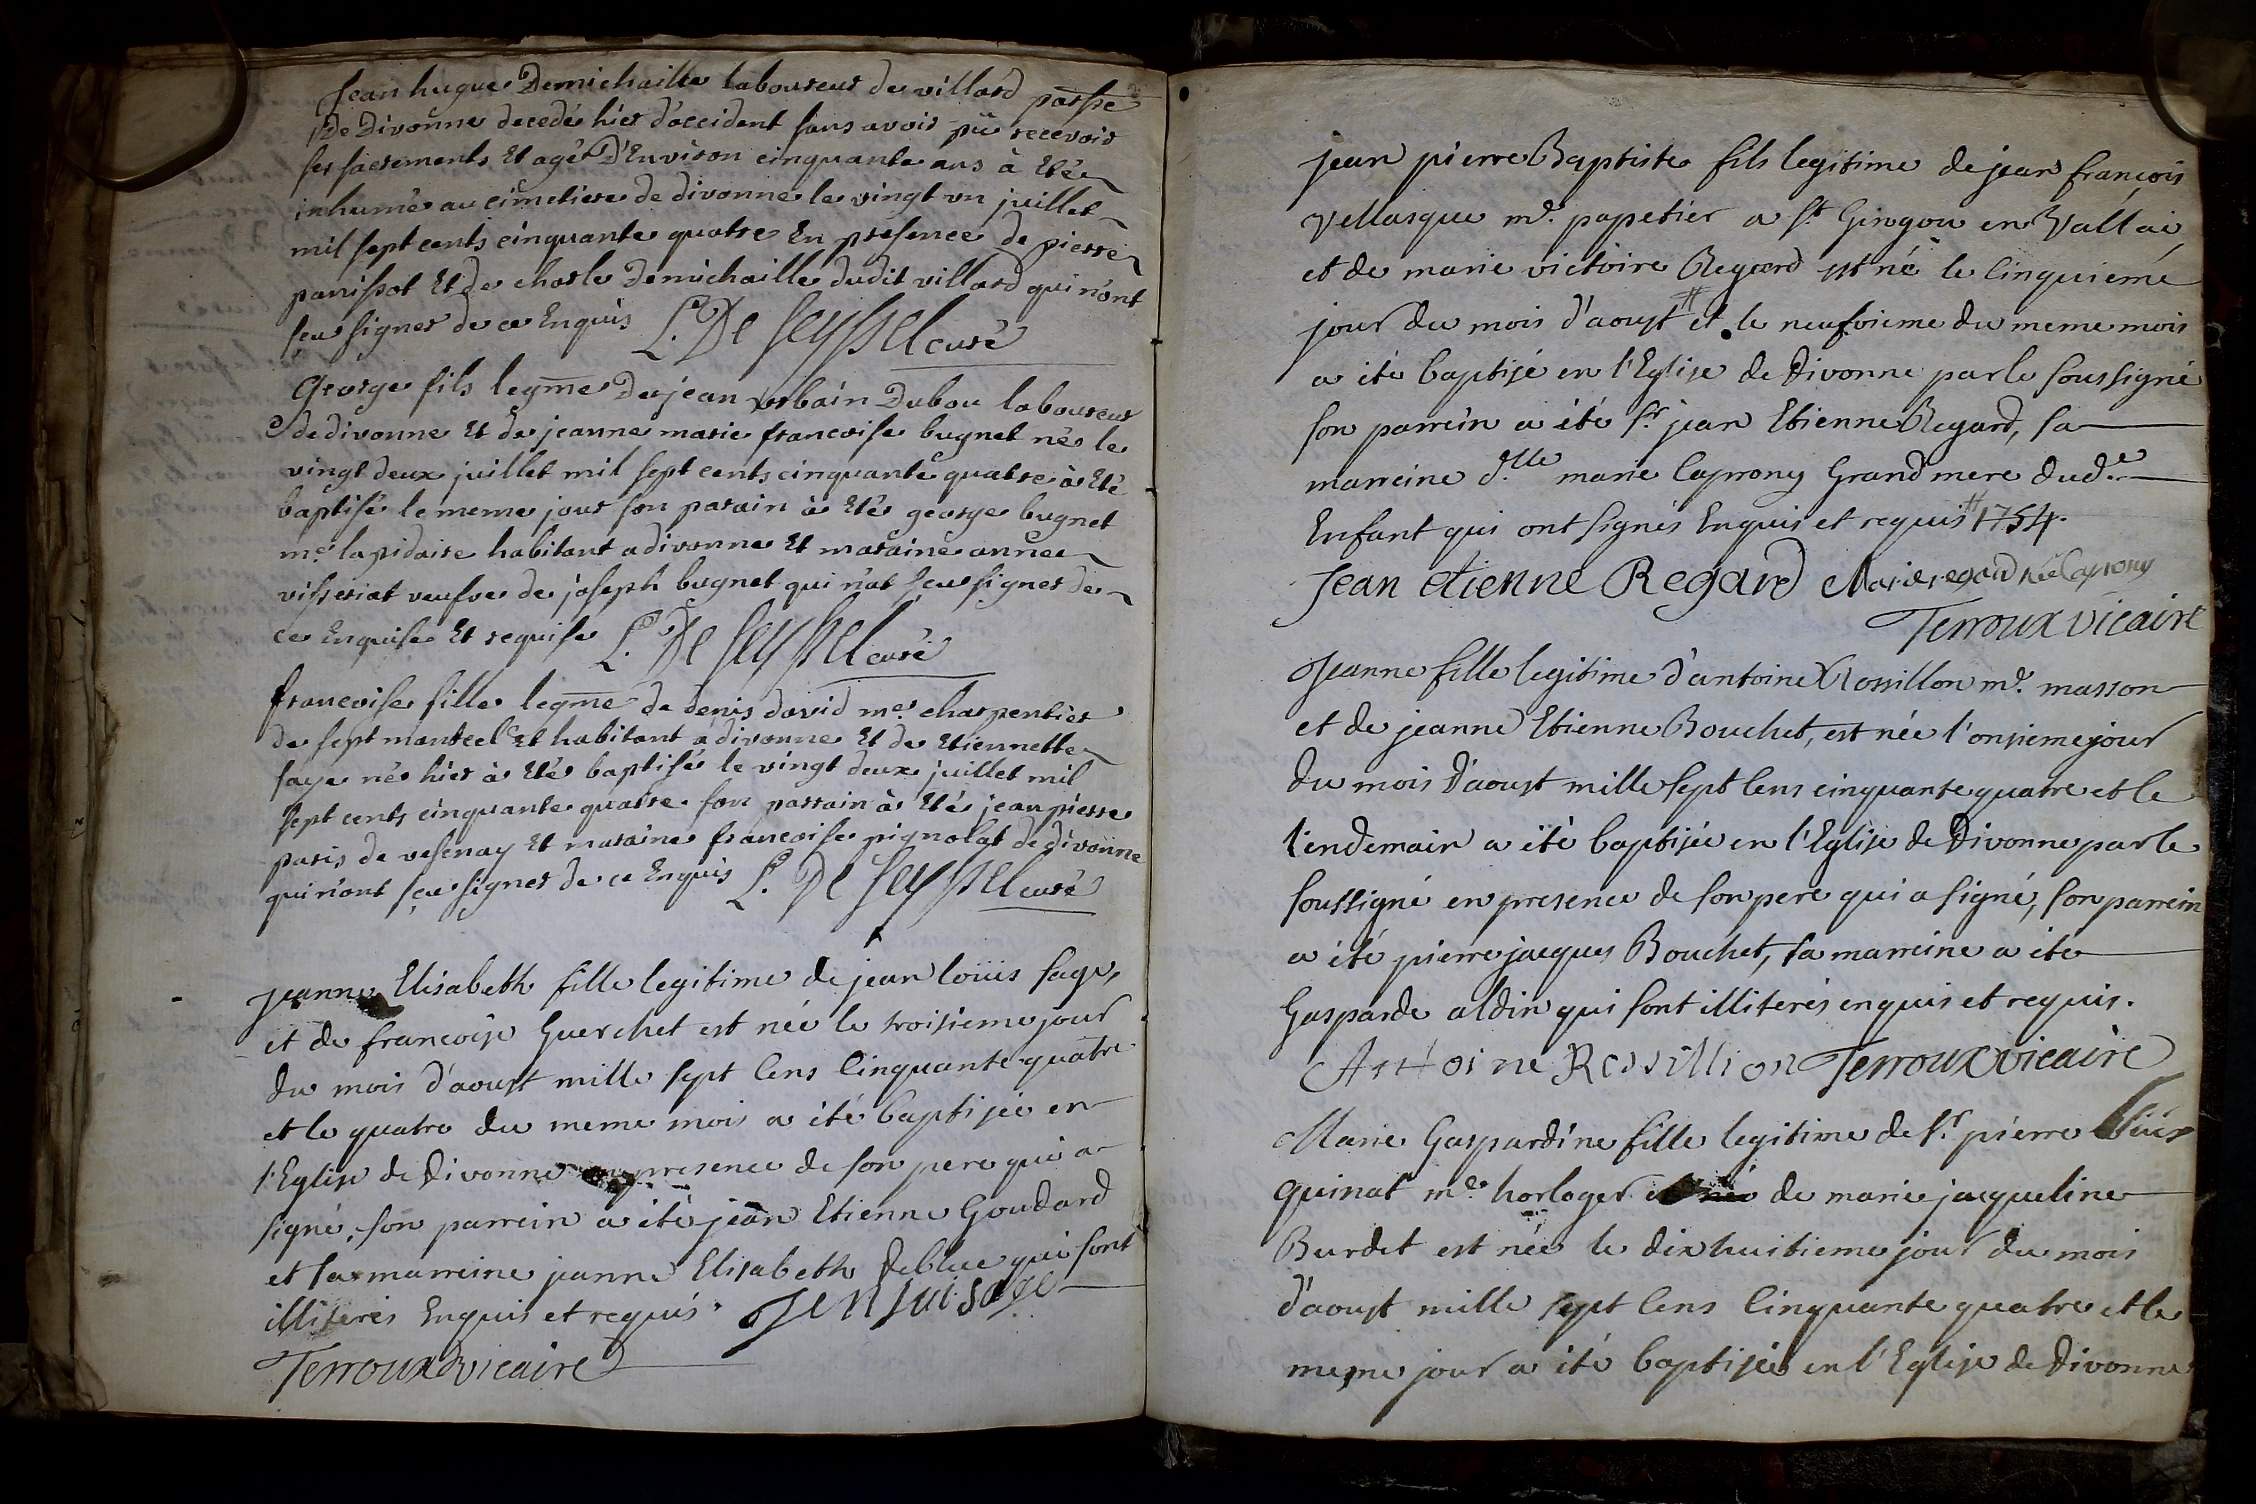 Jean hugue Demichaille laboureur de villard parsse
De Divonne decedé hier d'accident sans avoir pü recevoir
ses sacrements Et agé D'Environ cinquante ans à Eté
inhumé au cimetiere de divonne le vingt un juillet
mil sept cents cinquante quatre En presence de pierre
panissot Et de charle Demichaille dudit villard qui n'ont
sçu signer de ce Enquis L. De Seyssel curé
George fils legme De jean urbain Dubou laboureur
de divonne Et de jeanne marie francoise bugnet né le
vingt deux juillet mil sept cents cinquante quatre à Eté
baptisé le meme jour son parain à Eté george bugnet
me. lapidaire habitant a divonne Et maraine annee
visseriat veufve de joseph bugnet qui n'at sçu signer de
ce Enquise Et requise L. De Seyssel curé
francoise fille legme de denis david me. charpentier
de sept mantcel Et habitant a divonne Et de Etiennette
saye né hier à Eté baptisé le vingt deux juillet mil
sept cents cinquante quatre son parrain à Eté jean pierre
paris de vesenay Et maraine francoise pignolat de divonne
qui n'ont sçu signer de ce Enquis L. De Seyssel curé
jeanne Elisabeth fille legitime de jean loüis sage,
et de francoise Guerchet est née le troisieme jour
du mois d'aoust mille sept cens cinquante quatre
et le quatre du meme mois a été baptisée en
l'Eglise de Divonne en presence de son pere qui a
signé, son parrein a été jean Etienne Goudard
et sa marreine jeanne Elisabeth Deblue qui sont
illiterés Enquis et requis. Jen lui sage
Terroux vicaire
jean pierre Baptiste fils legitime de jean françois
Vellasque me. papetier a St Gingou en Vallai
et de marie victoire Regard est né le cinquieme
jour du mois d'aoust # et le neufvieme du meme mois
a été baptisé en l'Eglise de Divonne par le soussigné
son parrein a été Sr. jean Etienne Regard, sa
marreine d.lle marie Caprony Grand mere dud.e
Enfant qui ont signés Enquis et requis # 1754.
Jean etienne Regard Marie regard née Caprony
Terroux vicaire
Jeanne fille legitime d'antoine Rossillon me. masson
et de jeanne Etienne Bouchet, est née l'onsieme jour
du mois d'aoust mille sept cens cinquante quatre et le
lendemain a été baptisée en l'Eglise de Divonne par le
soussigné en presence de son pere qui a signé, son parrein
a été pierre jacques Bouchet, sa marreine a été
Gasparde aldin qui sont illiterés enquis et requis.
Antoine Rossillion Terroux vicaire
Marie Gaspardine fille legitime de Sr. pierre
quinat me. horloger et de marie jacqueline
Burdet est née le dixhuitieme jour du mois
d'aoust mille sept cens cinquante quatre et le
meme jour a été baptisée en l'Eglise de Divonne